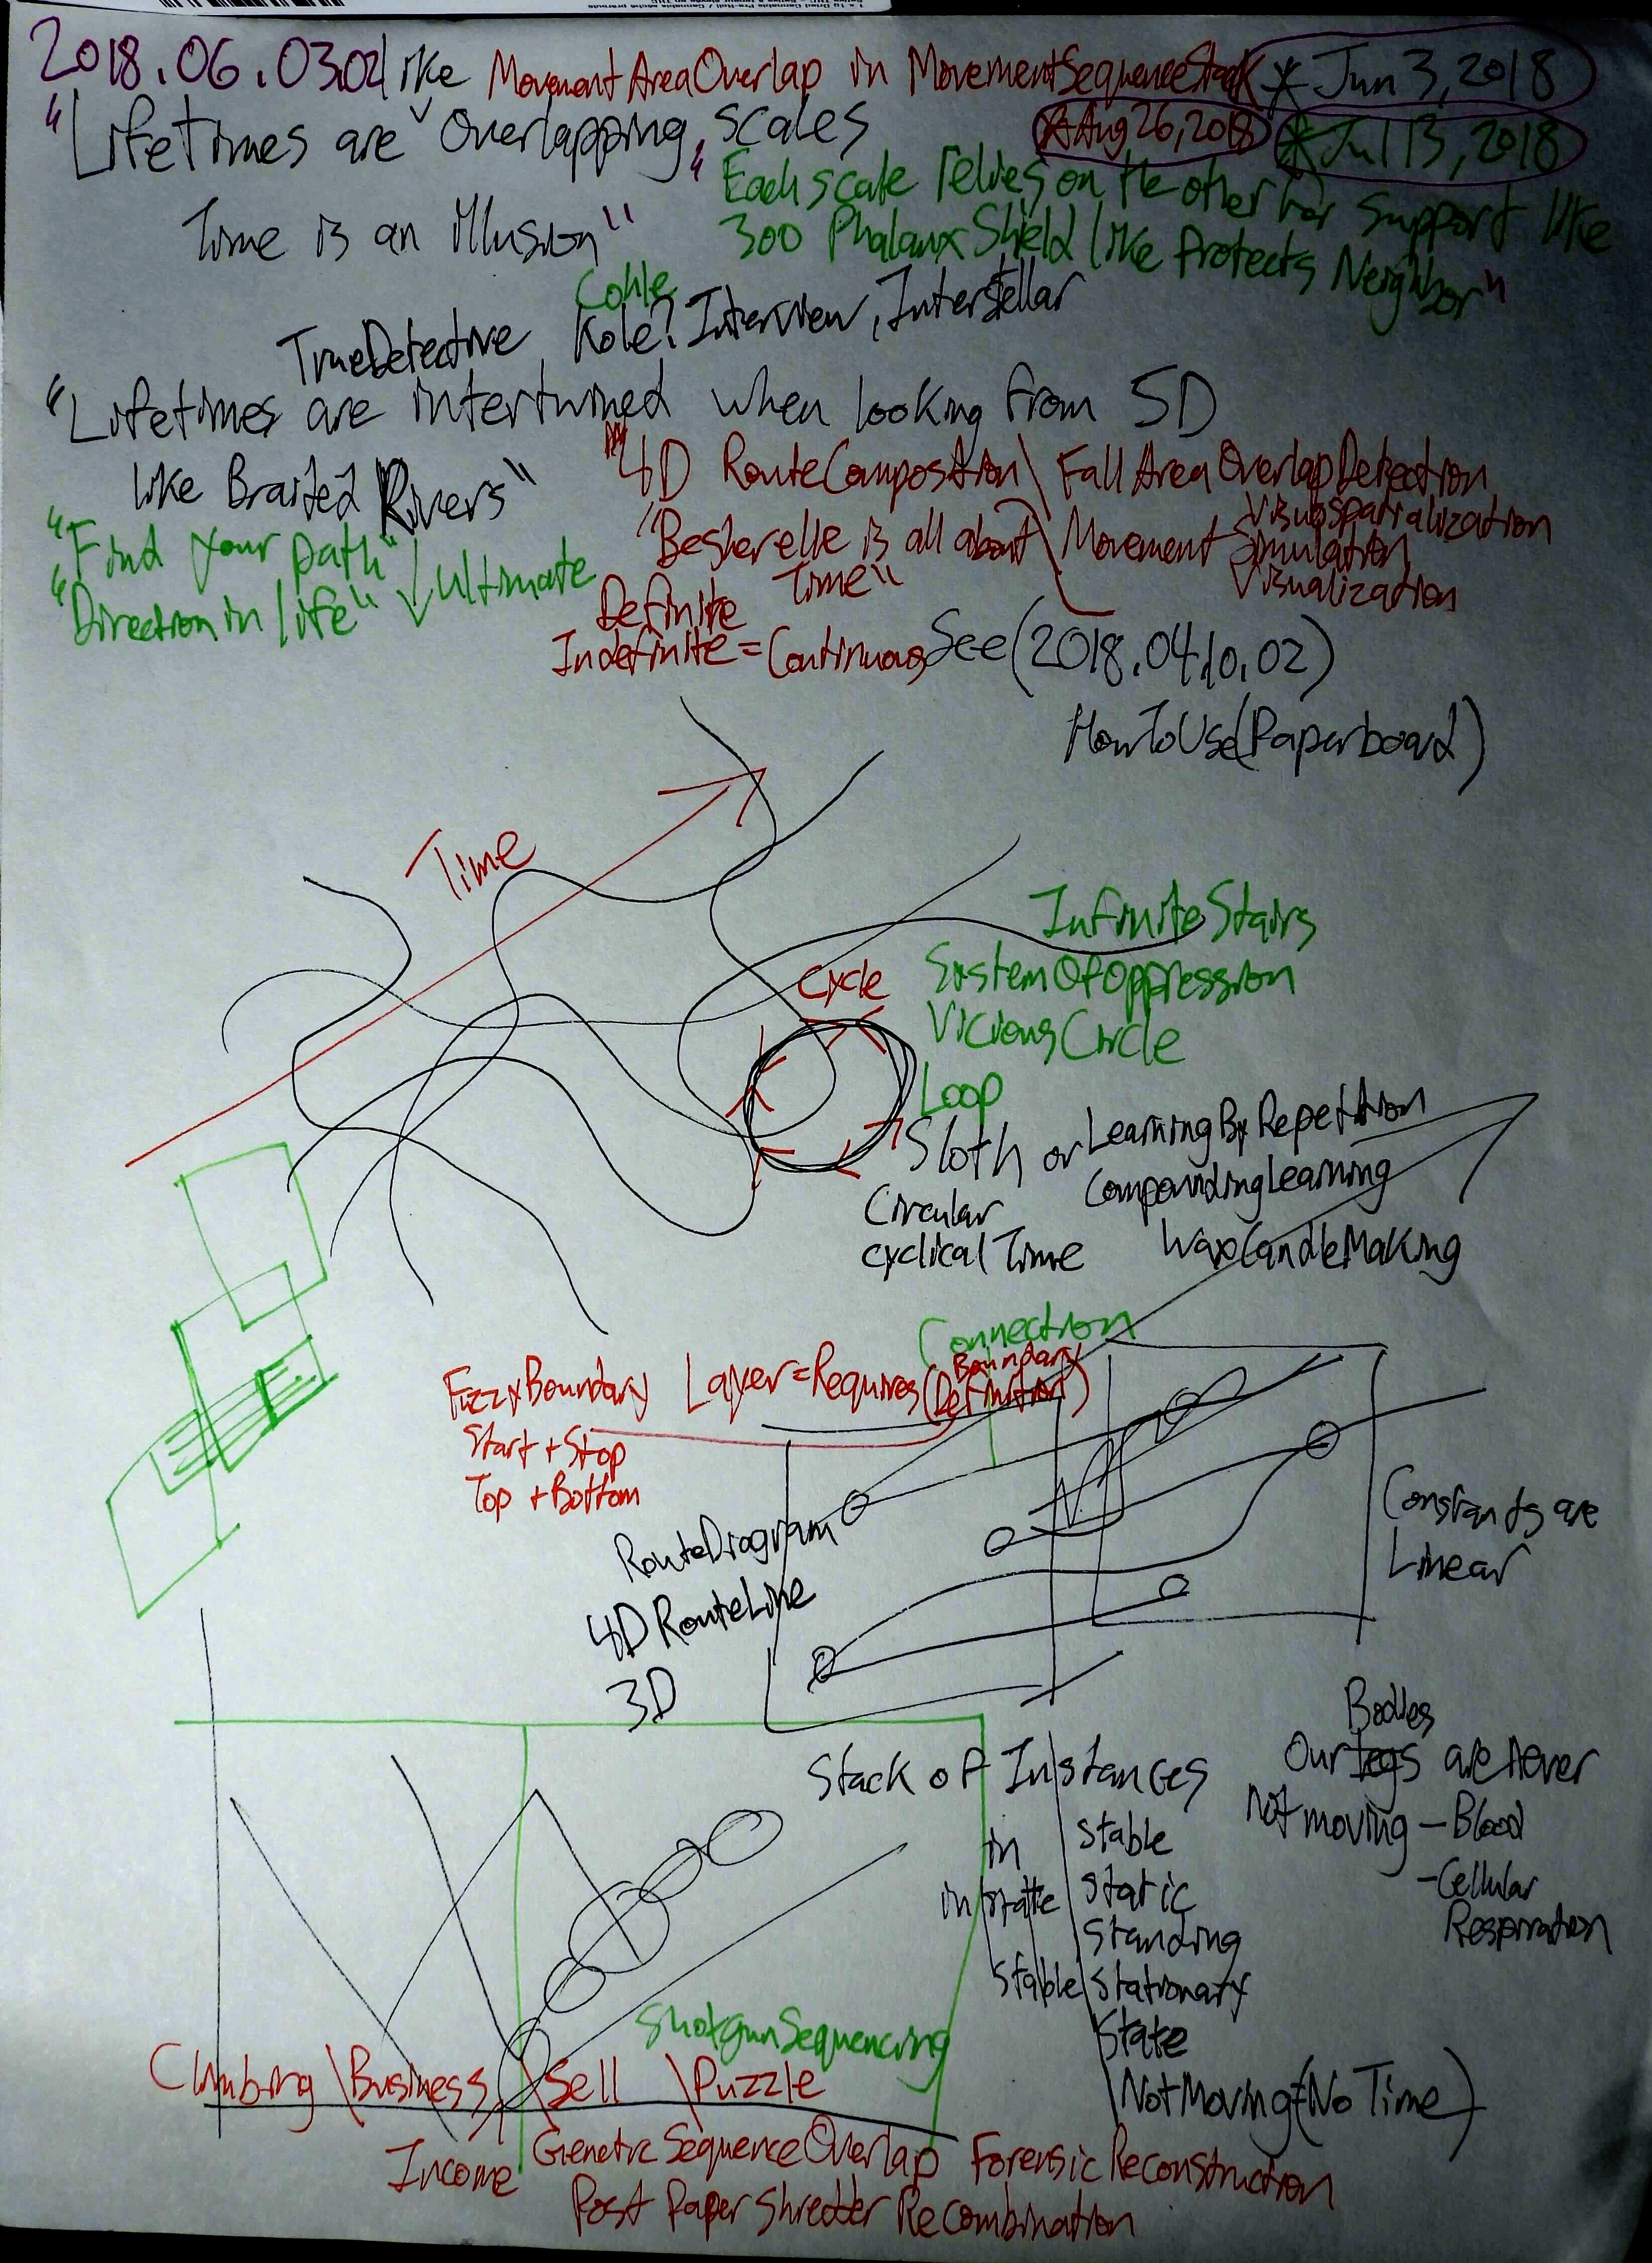 2018.06.03.02 like MovementAreaOverlap in MovementSequenceStack * Jun 3, 2018
"Lifetimes are ˅ Overlapping, scales
*Aug 26, 2018 * Jul 13, 2018
Time is an illusion"
"Each scale relies on the other for support like
300 Phalanx Shield like Protects Neighbor"
Cohle
TrueDetective Kole? Interview, Interstellar
"Lifetimes are intertwined when looking from 5D
like Braided Rivers"
"4D RouteComposition \ Fall Area OverlapDetection
"Find your path"
"Direction in life" Ultimate
"Besherelle is all about \ Movement Simulation
Time"
Visuospatialization
Visualization
Definite
Indefinite = Continuous See (2018.04.10.02)
HowToUse(Paperboard)
Time
InfiniteStairs
Cycle SystemOfOppression
ViciousCircle
Loop
Sloth or LearningByRepetition
Circular CompoundingLearning
cyclical Time WaxCandleMaking
Connection
FuzzyBoundary Layer = Requires(Definition)
Boundary
Start + Stop
Top + Bottom
RouteDiagram
4D RouteLine
3D
Constants are
Linear
Stack of Instances
in stable
static
standing
stable stationary
State
NotMoving=(No Time)
Bodies
Our legs are never
not moving - Blood
- Cellular
Respiration
ShotgunSequencing
Climbing \ Business \ Sell \ Puzzle
Income GeneticSequenceOverlap Forensic Reconstruction
Post Paper Shredder Recombination